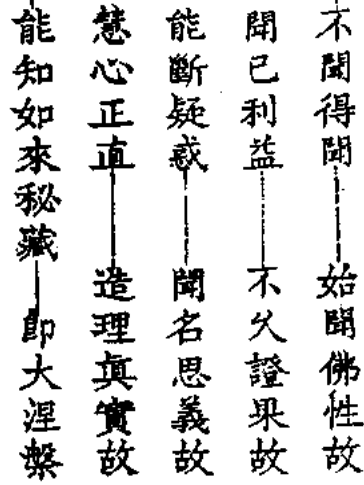 不聞得聞——始聞佛性故
聞已利益——不久證果故
能斷疑惑——聞名思義故
慧心正直——造理眞實故
能知如來秘藏—卽大涅槃